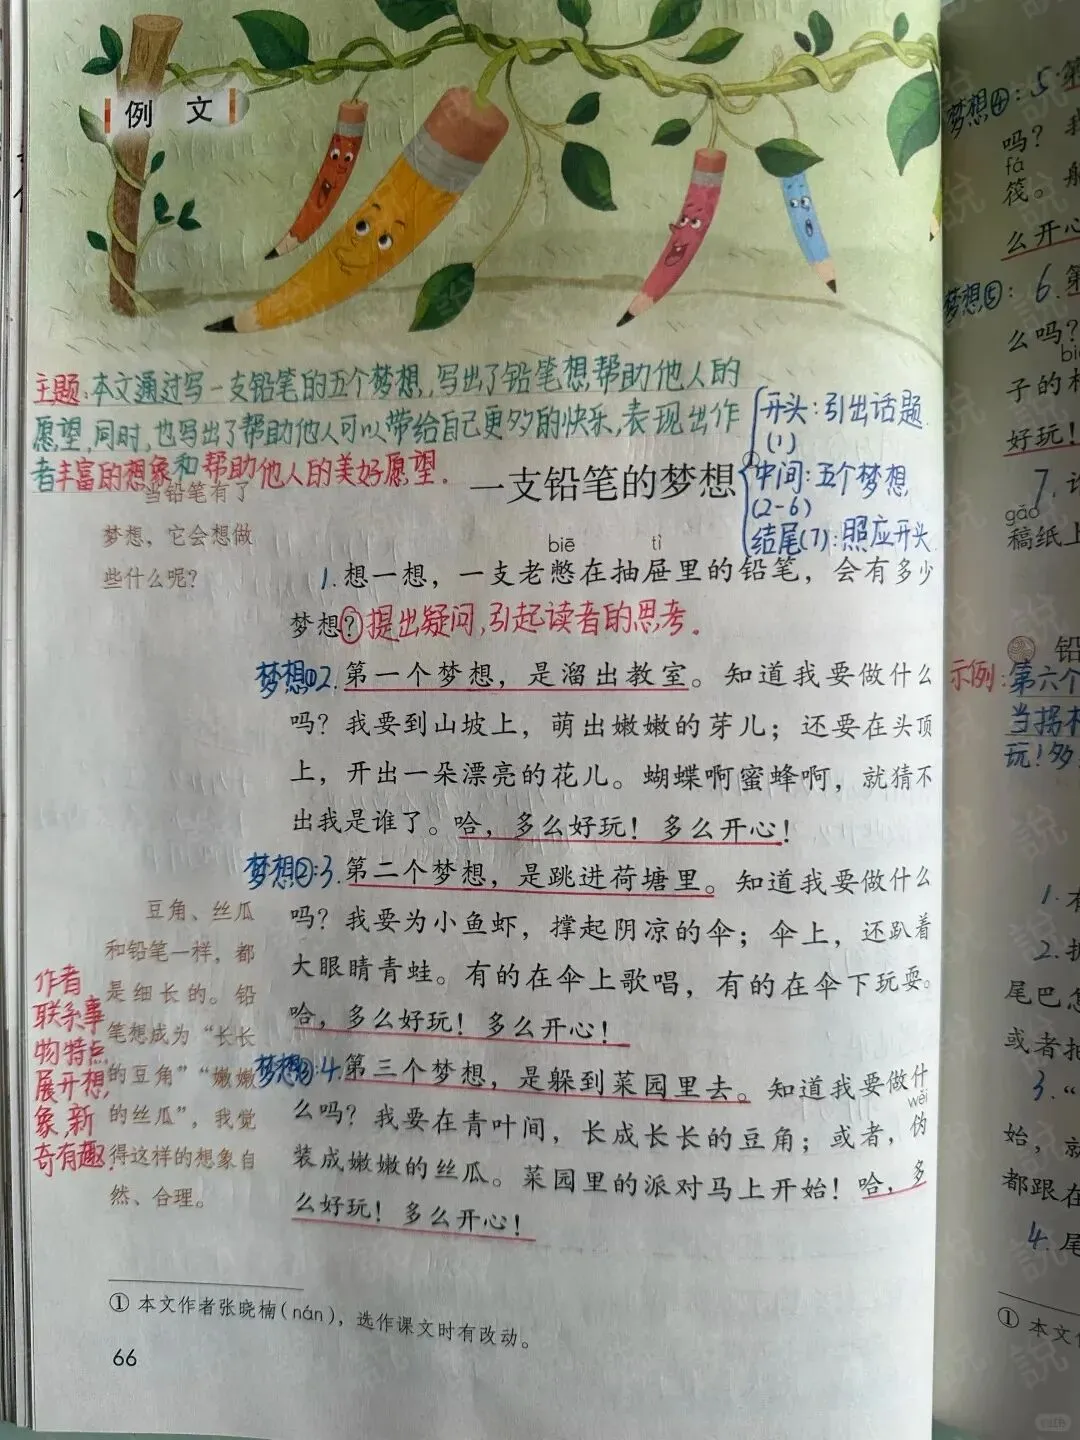 例 文
主题:本文通过写一支铅笔的五个梦想,写出了铅笔想帮助他人的
愿望,同时,也写出了帮助他人可以带给自己更多的快乐,表现出作
者丰富的想象和帮助他人的美好愿望.
开头:引出话题.
(1)
中间:五个梦想
(2-6)
结尾(7):照应开头.
一支铅笔的梦想①
当铅笔有了
梦想,它会想做
些什么呢?
biē tì
1.想一想,一支老憋在抽屉里的铅笔,会有多少
梦想?提出疑问,引起读者的思考.
梦想①2.第一个梦想,是溜出教室。知道我要做什么
吗?我要到山坡上,萌出嫩嫩的芽儿;还要在头顶
上,开出一朵漂亮的花儿。蝴蝶啊蜜蜂啊,就猜不
出我是谁了。哈,多么好玩!多么开心!
梦想②:3.第二个梦想,是跳进荷塘里。知道我要做什么
吗?我要为小鱼虾,撑起阴凉的伞;伞上,还趴着
大眼睛青蛙。有的在伞上歌唱,有的在伞下玩耍。
哈,多么好玩!多么开心!
豆角、丝瓜
和铅笔一样,都
是细长的。铅
笔想成为“长长
的豆角”“嫩嫩
的丝瓜”,我觉
得这样的想象自
然、合理。
作者
联系事
物特点
展开想,
象,新
奇有趣.
梦想③:4.第三个梦想,是躲到菜园里去。知道我要做什
wěi
么吗?我要在青叶间,长成长长的豆角;或者,伪
装成嫩嫩的丝瓜。菜园里的派对马上开始!哈,多
么好玩!多么开心!
① 本文作者张晓楠(nán),选作课文时有改动。
66
梦想④:5.第
吗?我
fá
筏。船
么开心
梦想⑤:6.第
么吗?
子的木
好玩!
7.
gǎo
稿纸上
铅
示例:第六个
当拐杖
玩!多
1.
2.
尾巴怎
或者把
3.“
始,就
都跟在
4.尾
① 本文